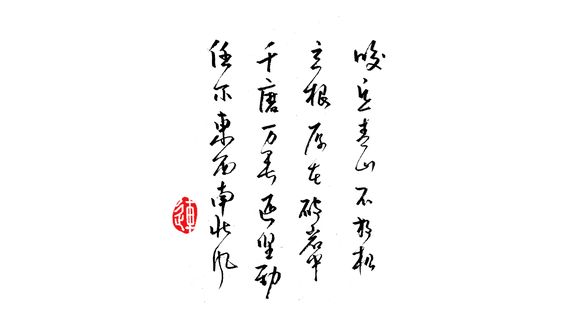 咬定青山不放松
立根原在破岩中
千磨万击还坚劲
任尔東西南北风